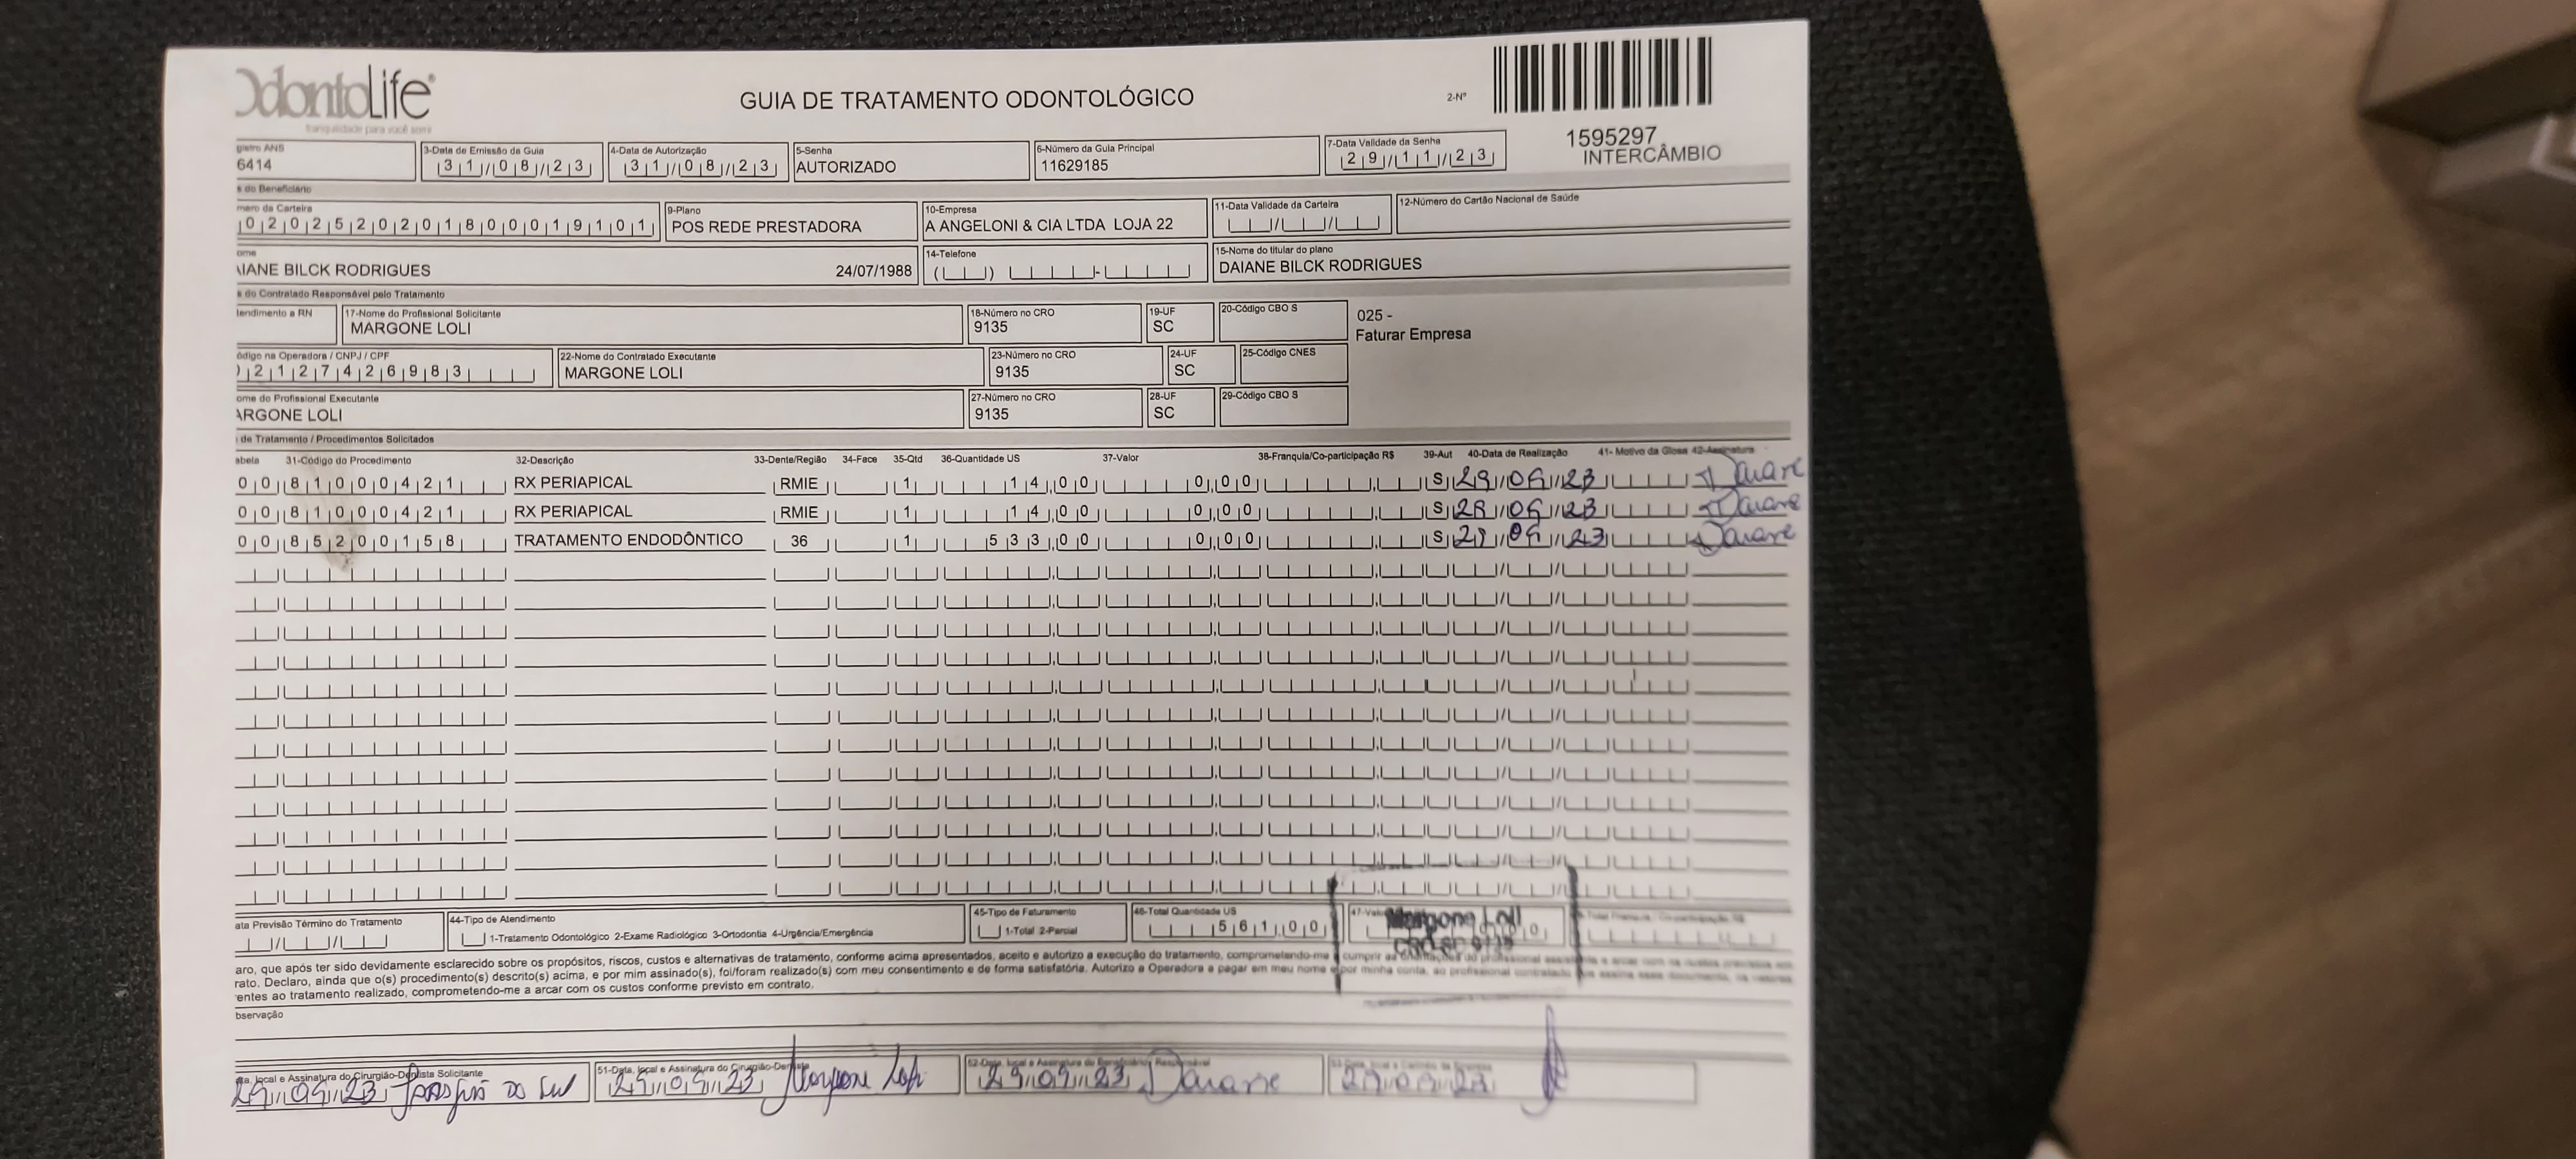 OdontoLife®
tranquilidade para você sorrir
GUIA DE TRATAMENTO ODONTOLÓGICO
2-Nº
1595297
INTERCÂMBIO
gistro ANS
6414
3-Data de Emissão da Guia
31/08/23
4-Data de Autorização
31/08/23
5-Senha
AUTORIZADO
6-Número da Guia Principal
11629185
7-Data Validade da Senha
29/11/23
s do Beneficiário
mero da Carteira
0202520201800019101
9-Plano
POS REDE PRESTADORA
10-Empresa
A ANGELONI & CIA LTDA LOJA 22
11-Data Validade da Carteira
12-Número do Cartão Nacional de Saúde
ome
IANE BILCK RODRIGUES 24/07/1988
14-Telefone
15-Nome do titular do plano
DAIANE BILCK RODRIGUES
s do Contratado Responsável pelo Tratamento
tendimento a RN
17-Nome do Profissional Solicitante
MARGONE LOLI
18-Número no CRO
9135
19-UF
SC
20-Código CBO S
025 -
Faturar Empresa
ódigo na Operadora / CNPJ / CPF
02127426983
22-Nome do Contratado Executante
MARGONE LOLI
23-Número no CRO
9135
24-UF
SC
25-Código CNES
ome do Profissional Executante
ARGONE LOLI
27-Número no CRO
9135
28-UF
SC
29-Código CBO S
de Tratamento / Procedimentos Solicitados
abela 31-Código do Procedimento 32-Descrição 33-Dente/Região 34-Face 35-Qtd 36-Quantidade US 37-Valor 38-Franquia/Co-participação R$ 39-Aut 40-Data de Realização 41- Motivo da Glosa 42-Assinatura
00 81000421 RX PERIAPICAL RMIE 1 14,00 0,00 S 29/09/23 Daiane
00 81000421 RX PERIAPICAL RMIE 1 14,00 0,00 S 29/09/23 Daiane
00 85200158 TRATAMENTO ENDODÔNTICO 36 1 533,00 0,00 S 29/09/23 Daiane
ata Previsão Término do Tratamento
44-Tipo de Atendimento
1-Tratamento Odontológico 2-Exame Radiológico 3-Ortodontia 4-Urgência/Emergência
45-Tipo de Faturamento
1-Total 2-Parcial
46-Total Quantidade US
561,00
Margone Loli
CRO SC 9135
aro, que após ter sido devidamente esclarecido sobre os propósitos, riscos, custos e alternativas de tratamento, conforme acima apresentados, aceito e autorizo a execução do tratamento, comprometendo-me a cumprir as orientações do profissional assistente e arcar com os custos previstos em
rato. Declaro, ainda que o(s) procedimento(s) descrito(s) acima, e por mim assinado(s), foi/foram realizado(s) com meu consentimento e de forma satisfatória. Autorizo a Operadora a pagar em meu nome e por minha conta, ao profissional contratado que assina esse documento, os valores
entes ao tratamento realizado, comprometendo-me a arcar com os custos conforme previsto em contrato.
bservação
ata, local e Assinatura do Cirurgião-Dentista Solicitante
29/09/23
51-Data, local e Assinatura do Cirurgião-Dentista
29/09/23 Margone Loli
52-Data, local e Assinatura do Beneficiário/Responsável
29/09/23 Daiane
29/09/23